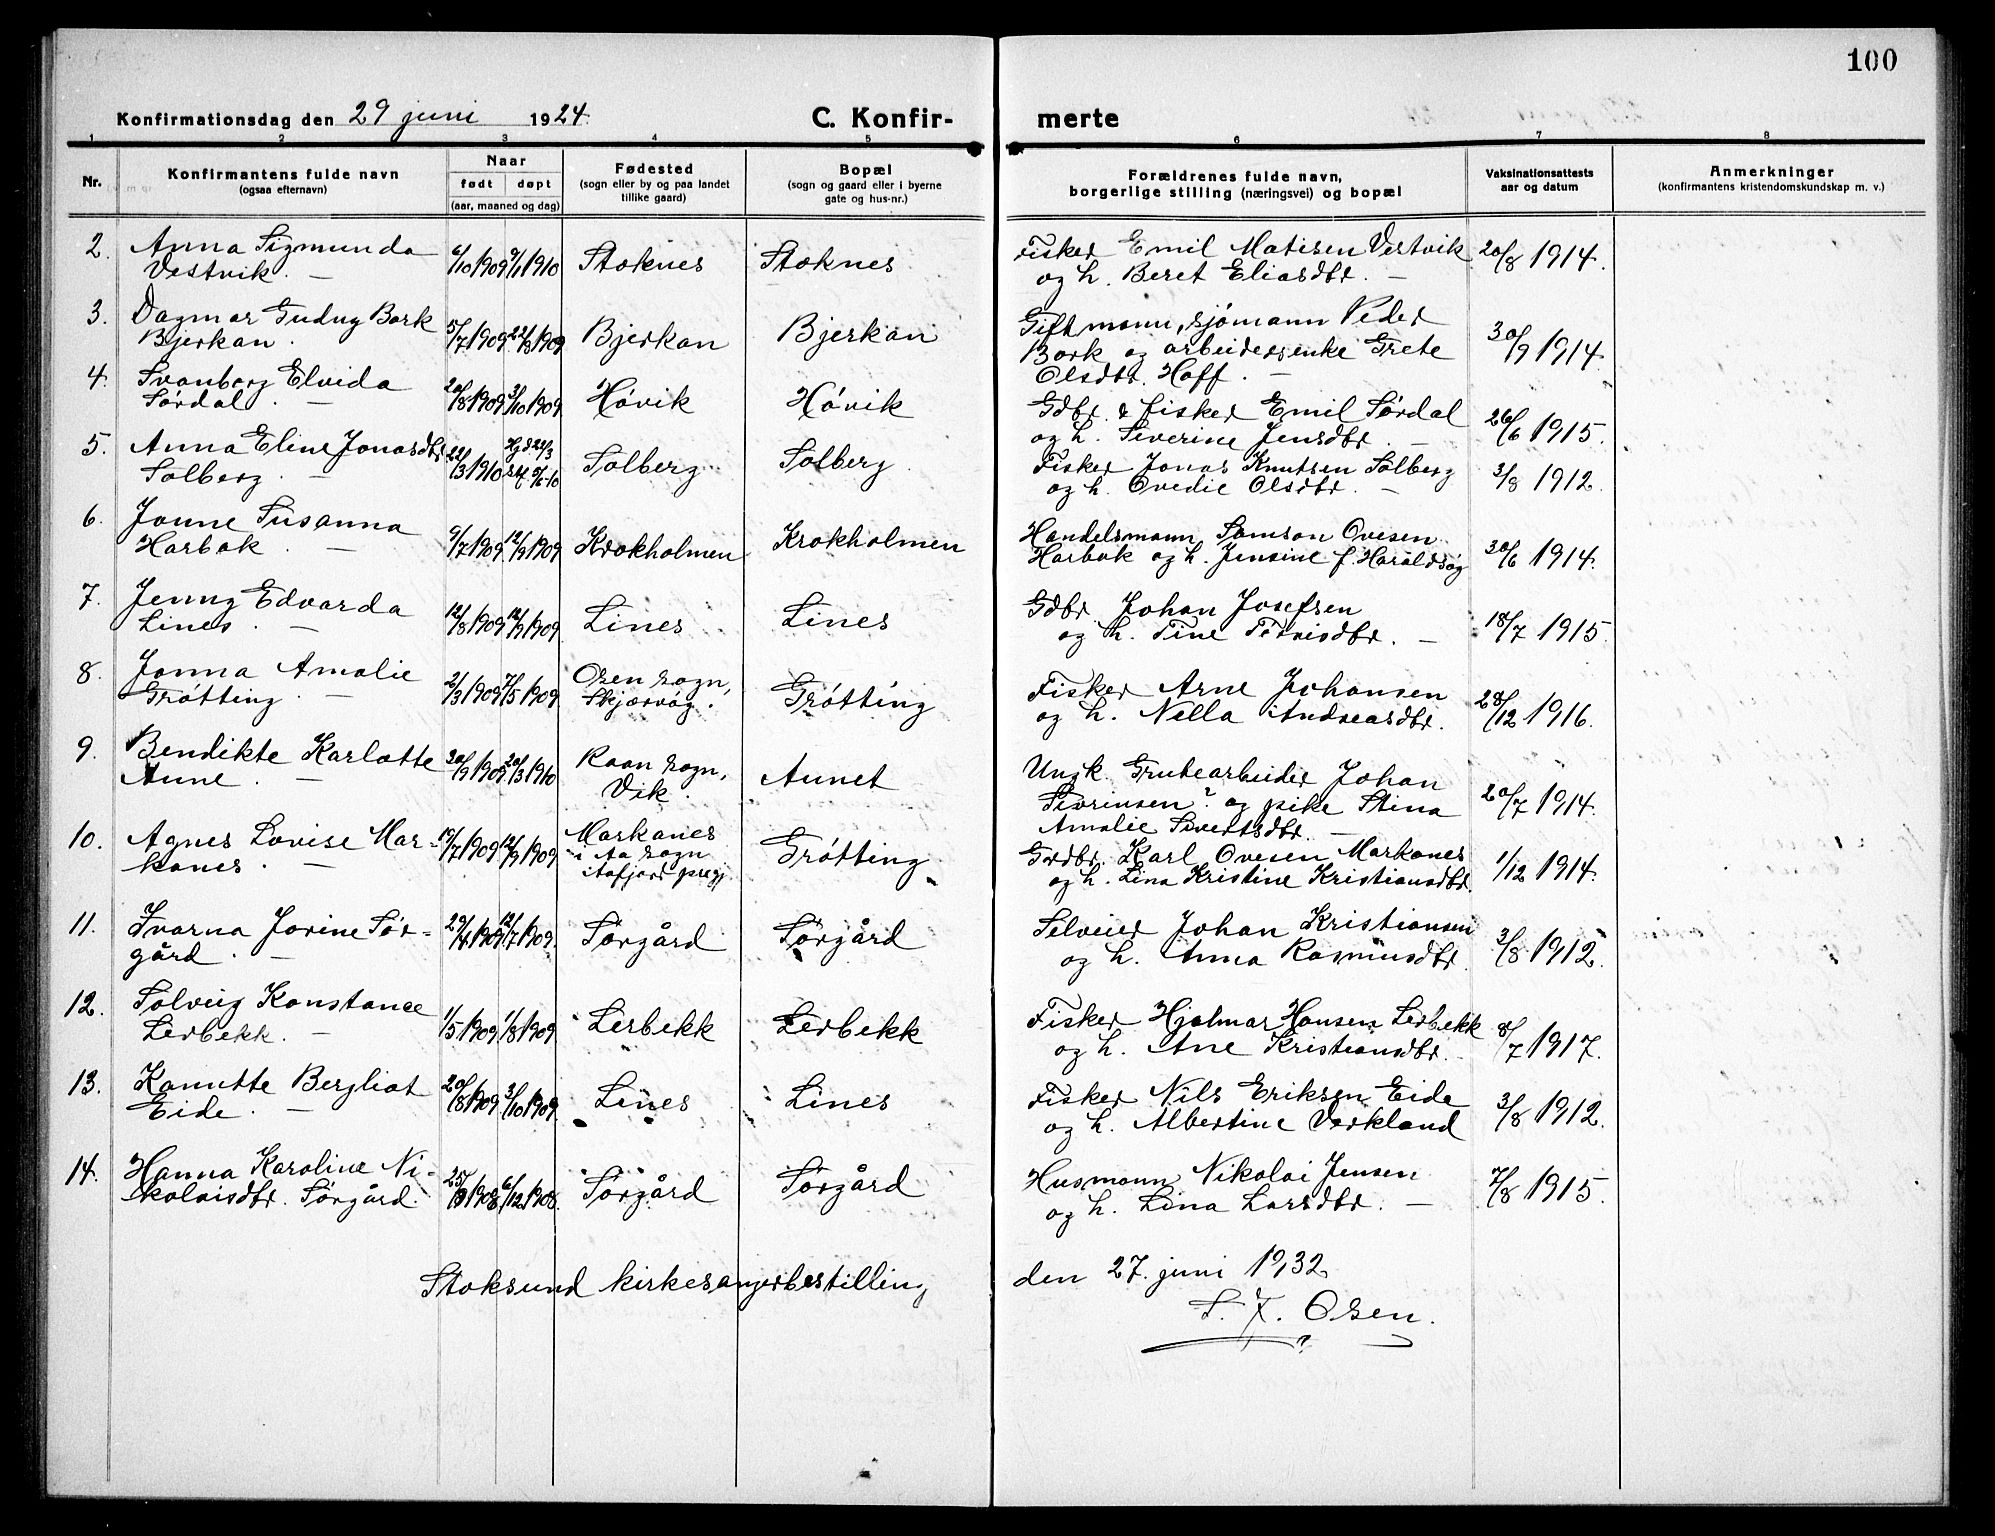 100
Konfirmationsdag den 29 juni 1924. C. Konfir- merte
1 2 3 4 5 6 7 8
Nr. Konfirmantens fulde navn (ogsaa efternavn) Naar født døpt (aar, maaned og dag) Fødested (sogn eller by og paa landet tillike gaard) Bopæl (sogn og gaard eller i byerne gate og hus-nr.) Forældrenes fulde navn, borgerlige stilling (næringsvei) og bopæl Vaksinationsattests aar og datum Anmerkninger (konfirmantens kristendomskundskap m. v.)
2. Anna Sigmunda 6/10 1909 9/1 1910 Stoknes Stoknes Fisker Emil Matisen Vestvik 20/8 1914.
Vestvik. — og h. Beret Eliasdtr. —
3. Dagmar Gudny Bork 5/7 1909 22/8 1909 Bjerkan Bjerkan Gift mann, sjømann Peder 30/9 1914.
Bjerkan. Bork og arbeiderenke Grete
Olsdtr. Hoff. —
4. Svanberg Elvida 20/8 1909 3/10 1909 Høvik Høvik Gdbr. & fisker Emil Sørdal 26/6 1915.
Sørdal. — og h. Severine Jensdtr. —
5. Anna Eline Jonasdtr 22/3 1910 Hjd 22/3 Solberg Solberg Fisker Jonas Knutsen Solberg 3/8 1912.
Solberg. — og h. Ovedie Olsdtr. —
6. Jonne Susanna 9/7 1909 12/9 1909 Krokholmen Krokholmen Handelsmann Samson Ovesen 30/6 1914.
Harbak. — Harbak og h. Jensine f. Haraldsøg
7. Jenny Edvarda 12/8 1909 12/9 1909 Lines Lines Gdbr. Johan Josefsen 18/7 1915.
Lines. — og h. Tine Torrisdtr. —
8. Jonna Amalie 2/3 1909 7/5 1909 Osen sogn, Grøtting Fisker Arne Johansen 28/12 1916.
Grøtting. — Skjærvøg. og h. Nella Andreasdtr.
9. Bendikte Karlotte 30/9 1909 20/3 1910 Raan sogn, Aunet Ungk. Grubearbeider Johan 20/7 1914.
Aune. — Vik. Sivrinsen? og pike Stina
Amalie Sivertsdtr. —
10. Agnes Lovise Mar- 19/7 1909 12/9 1909 Markanes Grøtting Grdbr. Karl Ovesen Markanes 1/12 1914.
kanes. — i Aa sogn og h. Lina Kristine Kristiansdtr.
i Aafjord pregj.
11. Ivarna Jorine Sør- 29/4 1909 12/7 1909. Sørgård Sørgård Selveier Johan Kristiansen 3/8 1912.
gård. — og h. Anna Rasmusdtr.
12. Solveig Konstance 1/5 1909 1/8 1909 Lerbekk Lerbekk Fisker Hjalmar Hansen Lerbekk 8/7 1917.
Lerbekk. — og h. Ane Kristiansdtr.
13. Kanutte Bergliot 20/8 1909 3/10 1909. Lines Lines Fisker Nils Eriksen Eide 3/8 1912.
Eide. — og h. Albertine Verkland
14. Hanna Karoline Ni- 25/9 1908 6/12 1908. Sørgård Sørgård Husmann Nikolai Jensen 7/8 1915.
kolaisdtr. Sørgård. og h. Lina Larsdtr. —
Stoksund kirkesangerbestilling den 27. juni 1932
S. J. Osen.